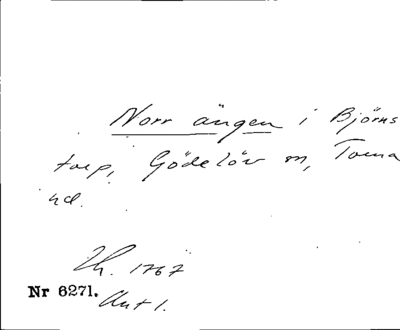 Norr ängen i Björns
torp, Gödelöv sn, Torna
hd.
Lh. 1767
Nr 6271.
Akt 1.